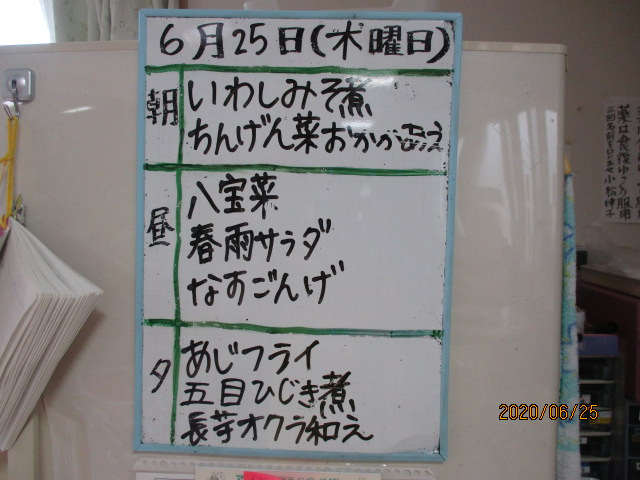 6月25日(木曜日)
朝
いわしみそ煮
ちんげん菜おかかあえ
昼
八宝菜
春雨サラダ
なすごんげ
夕
あじフライ
五目ひじき煮
長芋オクラ和え
薬は食後ゆっくり服用
2020/06/25